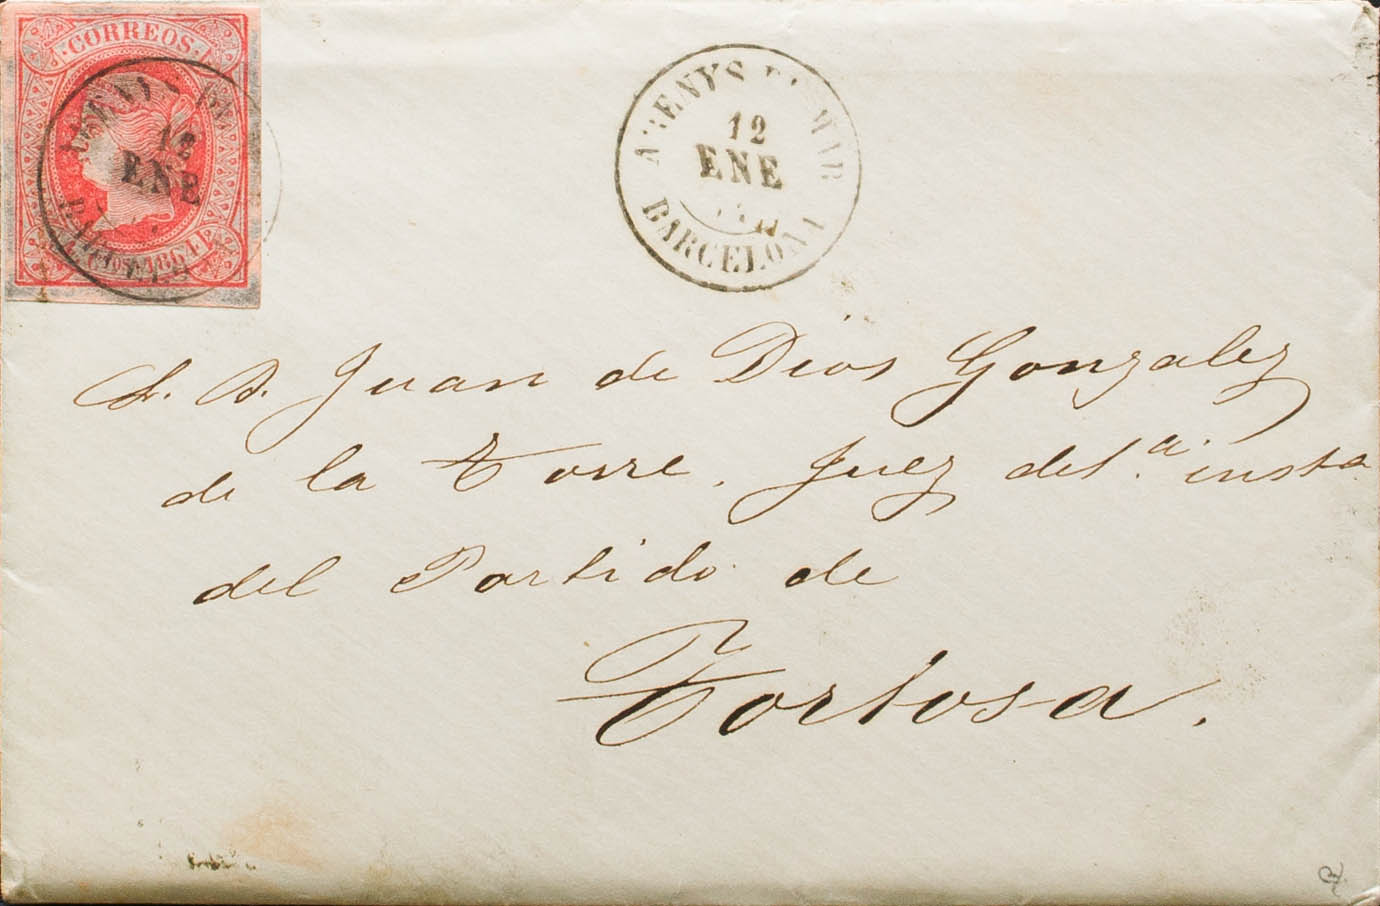 CORREOS
ARENYS DE MAR
12
ENE
BARCELONA
S. D. Juan de Dios Gonzalez
de la Torre, Juez de 1.ª insta
del Partido de
Tortosa.